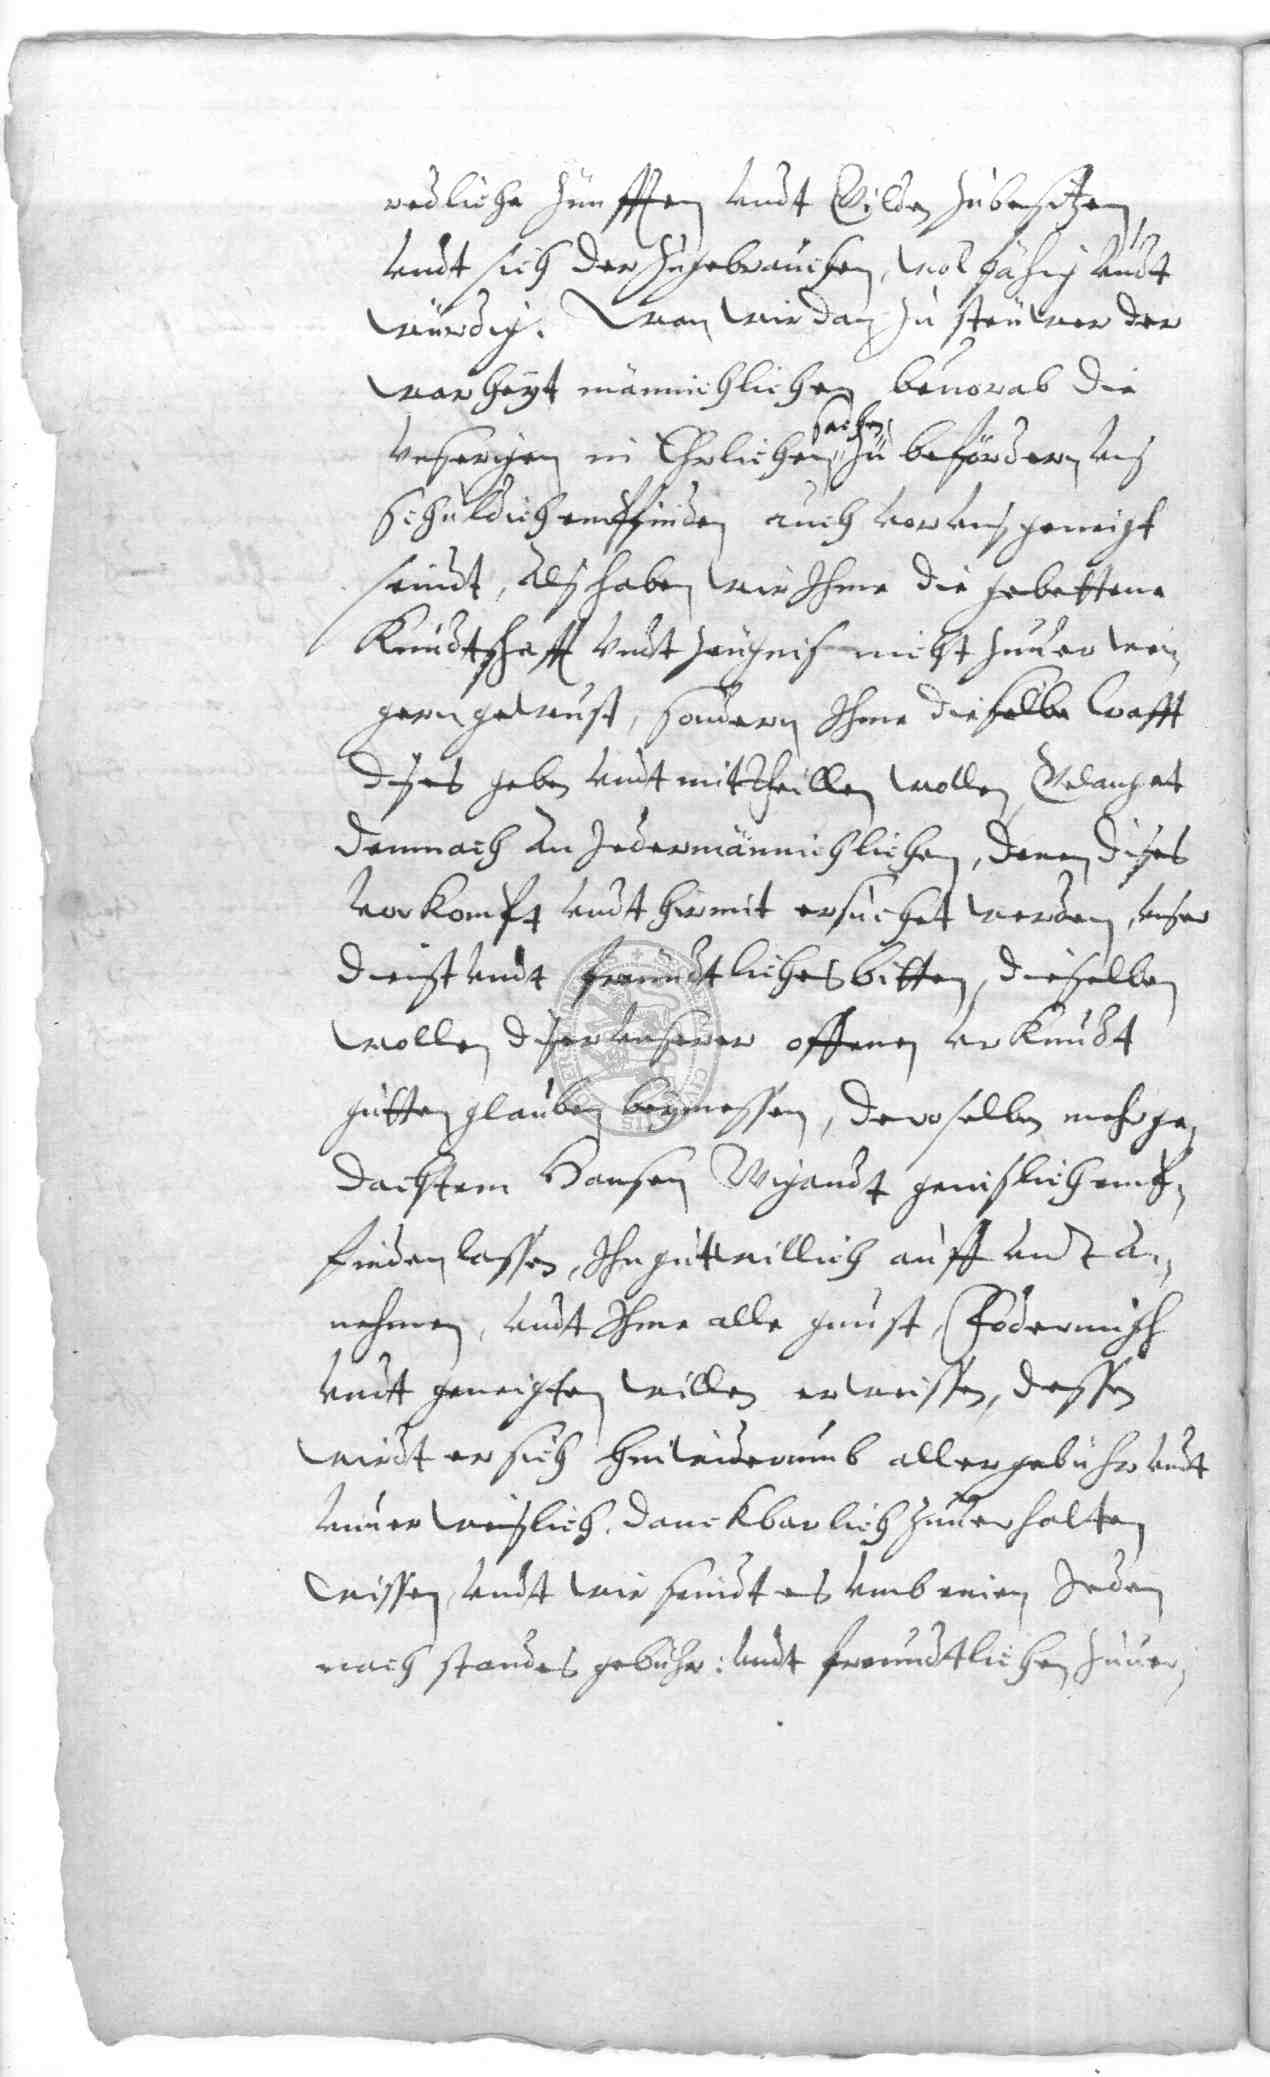 redliche Zünfften vndt Gilden zubesitzen,
vndt sich der zugebrauchen, wol fähig vndt
würdig. Wan wir dan zu steüwer der
warheyt männichlichen beuorab die
vnserigen in Ehrlichen sachen zu befördern vns
schuldich empfinden auch vor vns geneigt
seindt, Alß haben wir Ihme die gebettene
Kundtschafft vndt zeugnis nicht zuuerwei,
gern gewust, sondern Ihme dieselbe Crafft
dises geben vndt mittheillen wollen, Gelanget
demnach an Jedermännichlichen, denen dises
vorkompt vndt hiermit ersuchet werden, vnser
dienst vndt freundtliches bitten, dieselben
wollen diser vnserer offenen vrkundt
gutten glauben beymessen, deroselben mehrge,
dachtem Hansen Wigandt genislich emp,
finden lassen, Ihn gutwillich auff vndt an,
nehmen, vndt Ihme alle gunst,Föderung
vndt geneigten willen erweissen, dessen
wirdt er sich hinwiderumb aller gebühr vndt
vnuerweislich danckbarlich zuuerhalten
wissen, vndt wir seindt es vmb einen Jeden
nach standes gebühr: vndt freundtlichen zuuer,